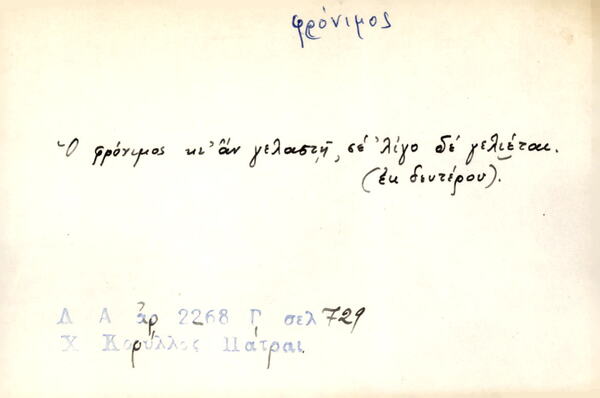 φρόνιμος
Ὁ φρόνιμος κι' ἄν γελαστῇ, σέ λίγο δέ γελιέται.
(ἐκ δευτέρου).
Λ Α ἀρ 2268 Γ σελ 729
Χ Κορύλλος Πάτραι